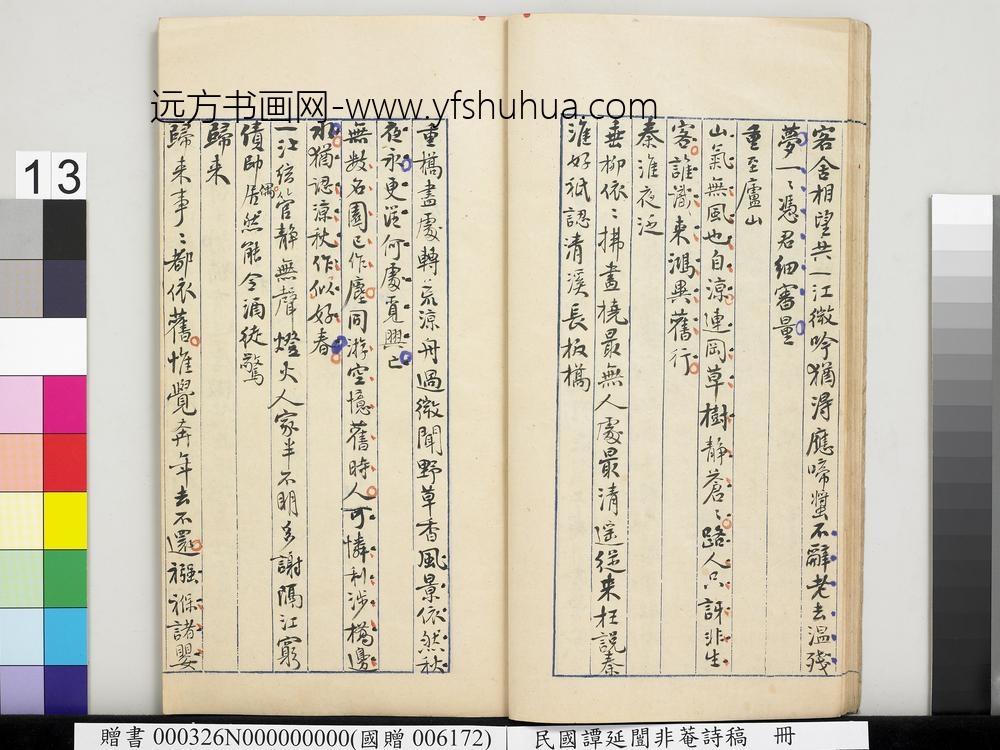 远方书画网-www.yfshuhua.com
客舍相望共一江微吟猶得應啼螿不辭老去溫殘
夢一〻憑君細審量
重至廬山
山氣無風也自涼連岡草樹靜蒼〻路人只訝非生
客誰識東鴻異舊行
秦淮夜泛
垂柳依〻拂畫橈最無人處最清遥從來枉說秦
淮好祇認清溪長板橋
重橋盡處轉荒涼舟過微聞野草香風景依然秋
夜永更從何處覓興亡
無數名園已作塵同游空憶舊時人可憐利涉橋邊
水猶認涼秋作似好春
一江絃管靜無聲燈火人家半不明多謝隔江窮
債帥偶居然能令酒徒驚
歸來
歸來事〻都依舊惟覺奔年去不還襁褓諸嬰
13
贈書 000326N000000000(國贈 006172) 民國譚延闓非菴詩稿 冊